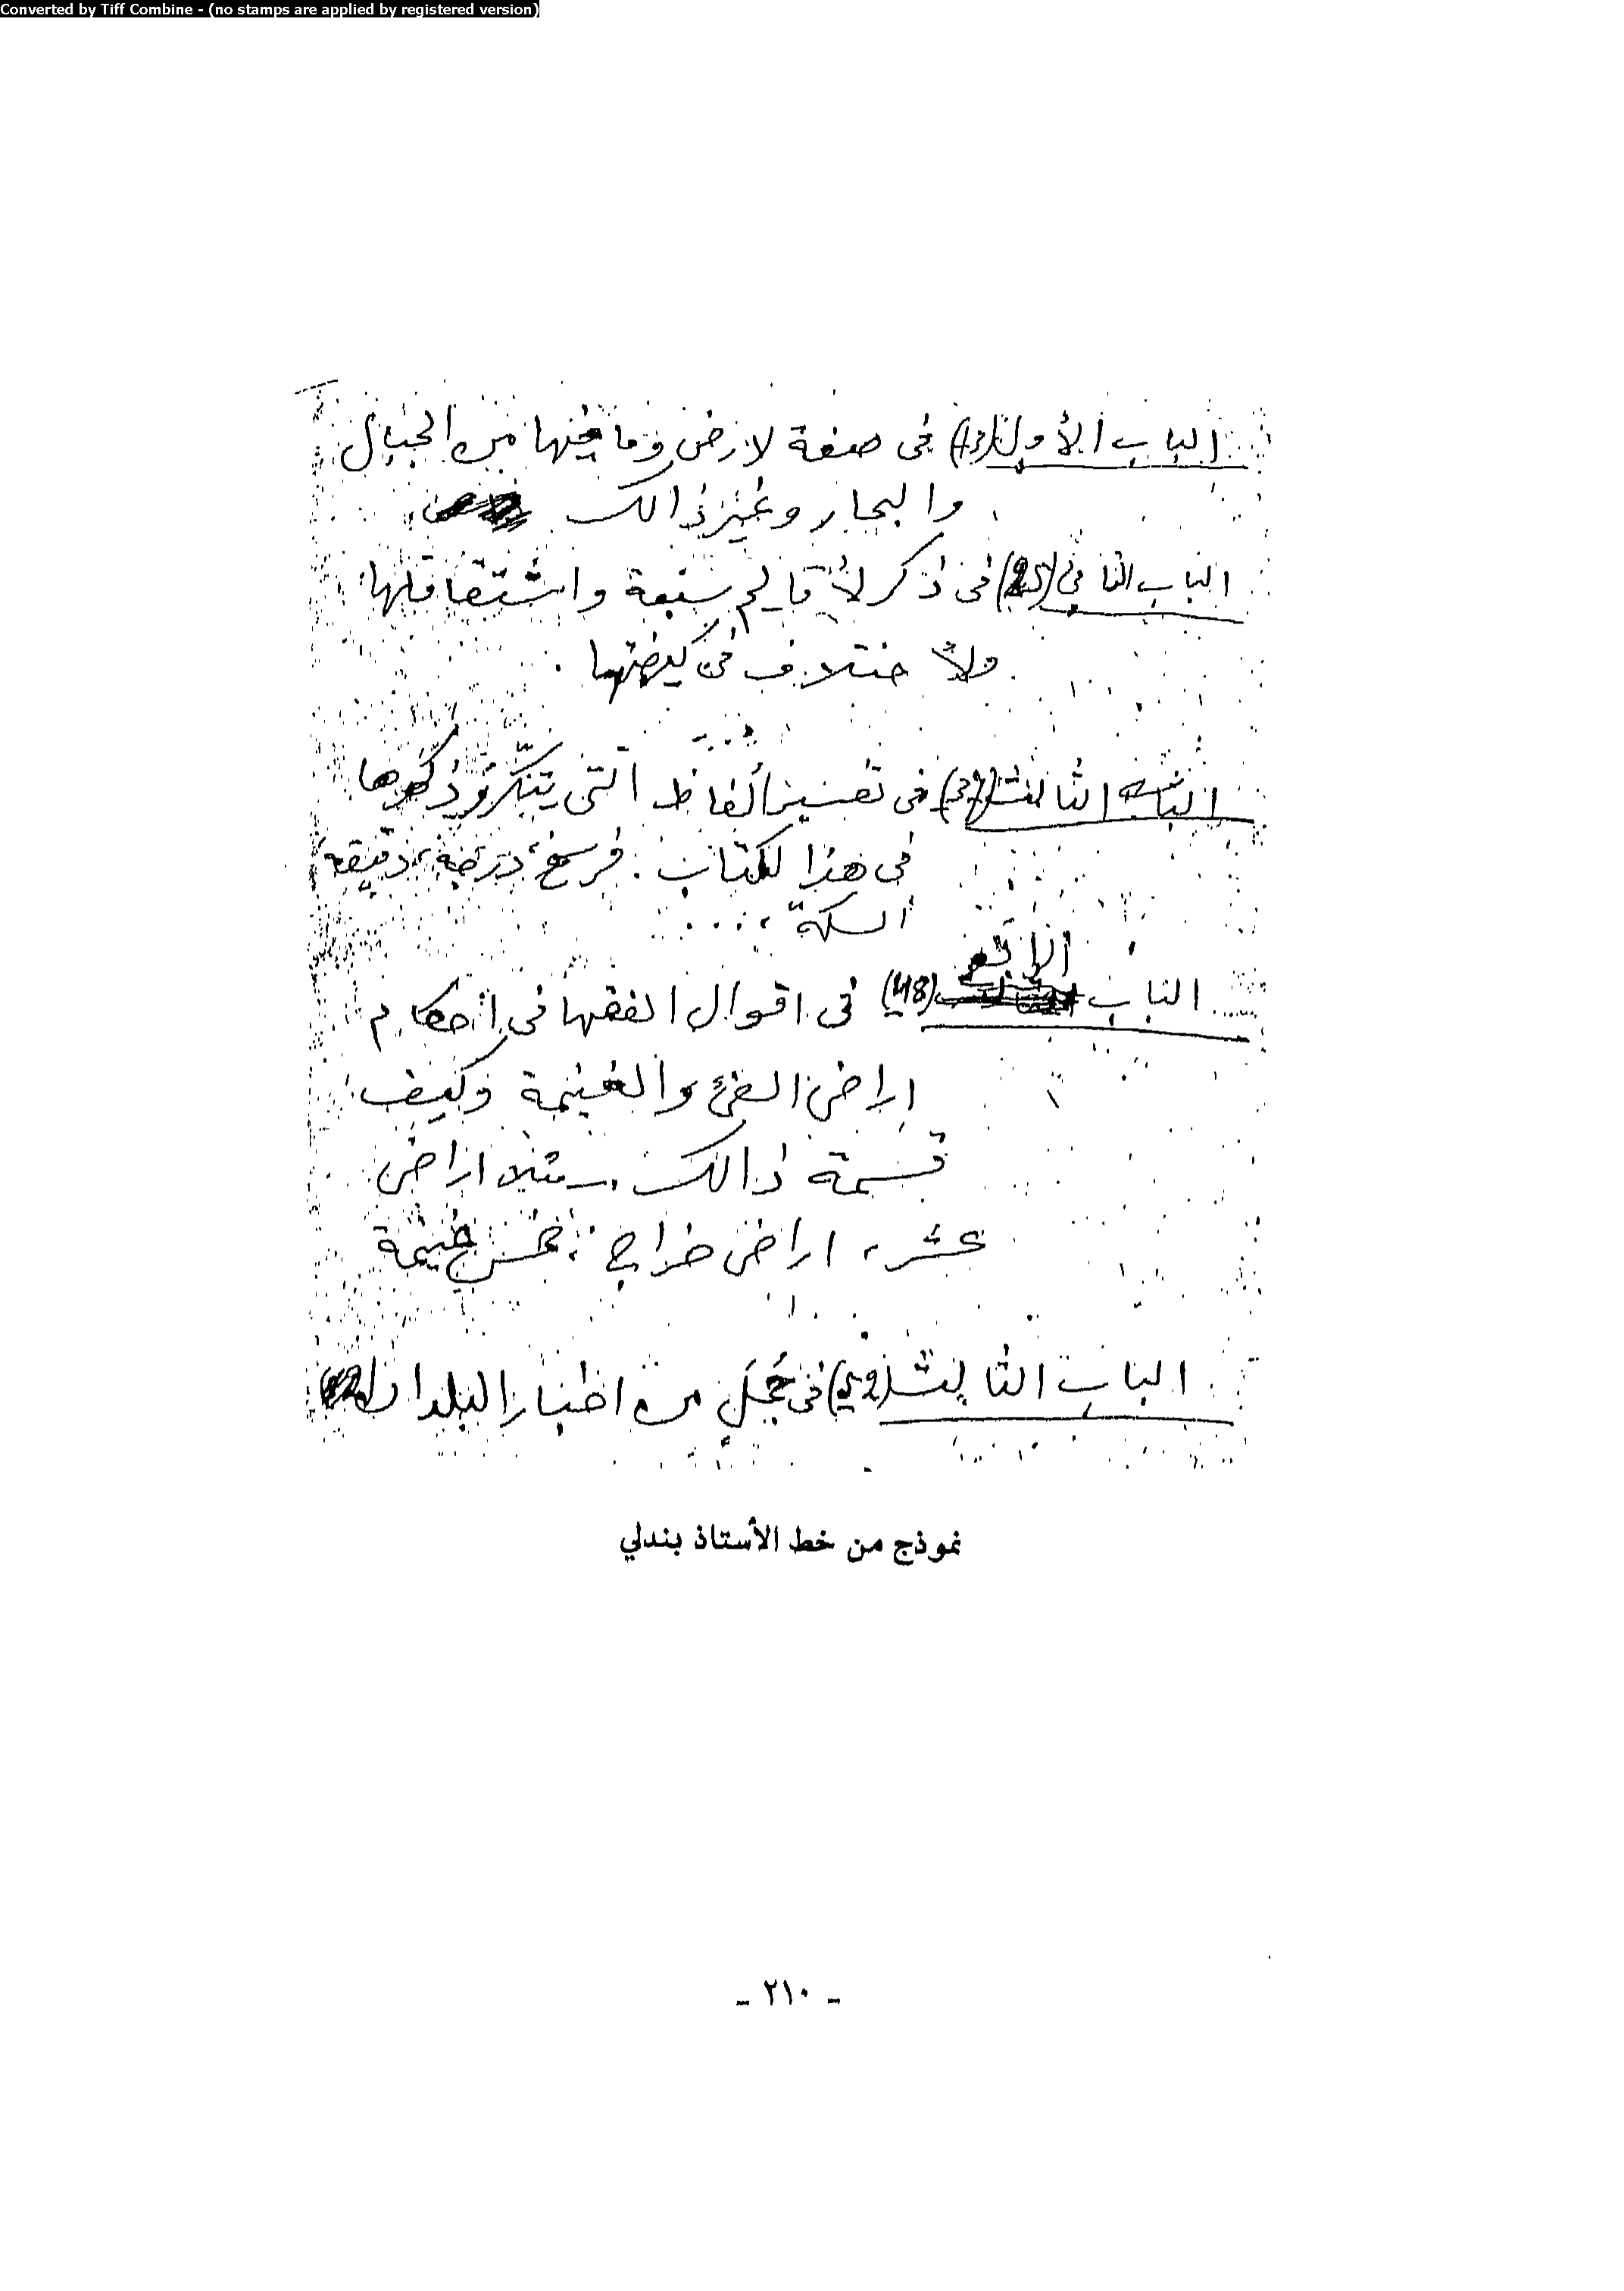 Converted by Tiff Combine - (no stamps are applied by registered version)
الباب الأول في صفة لارض وما فيها من الجبال
والبحار وغير ذالك
الباب الثاني (25) في ذكر لأقاليم سبعة واشتقاقها
ولأختلاف في كيفيتها
الباب الثالث في تفسير ألفاظ التي يتكرّر ذكرها
في هذا لكتاب . فرسخ، درجة، دقيقة
السكة ، ....
الباب الرابع (48) في اقوال الفقها في احكام
اراضي الفئ والغنيمة وكيف
قسمة ذالك . مثلا اراضي
عشر ، اراضي خراج ، خمس غنيمة
الباب الثالث في جُمَلٍ من اخبار البلدان
نموذج من خط الأستاذ بندلي
- ٢١٠ -